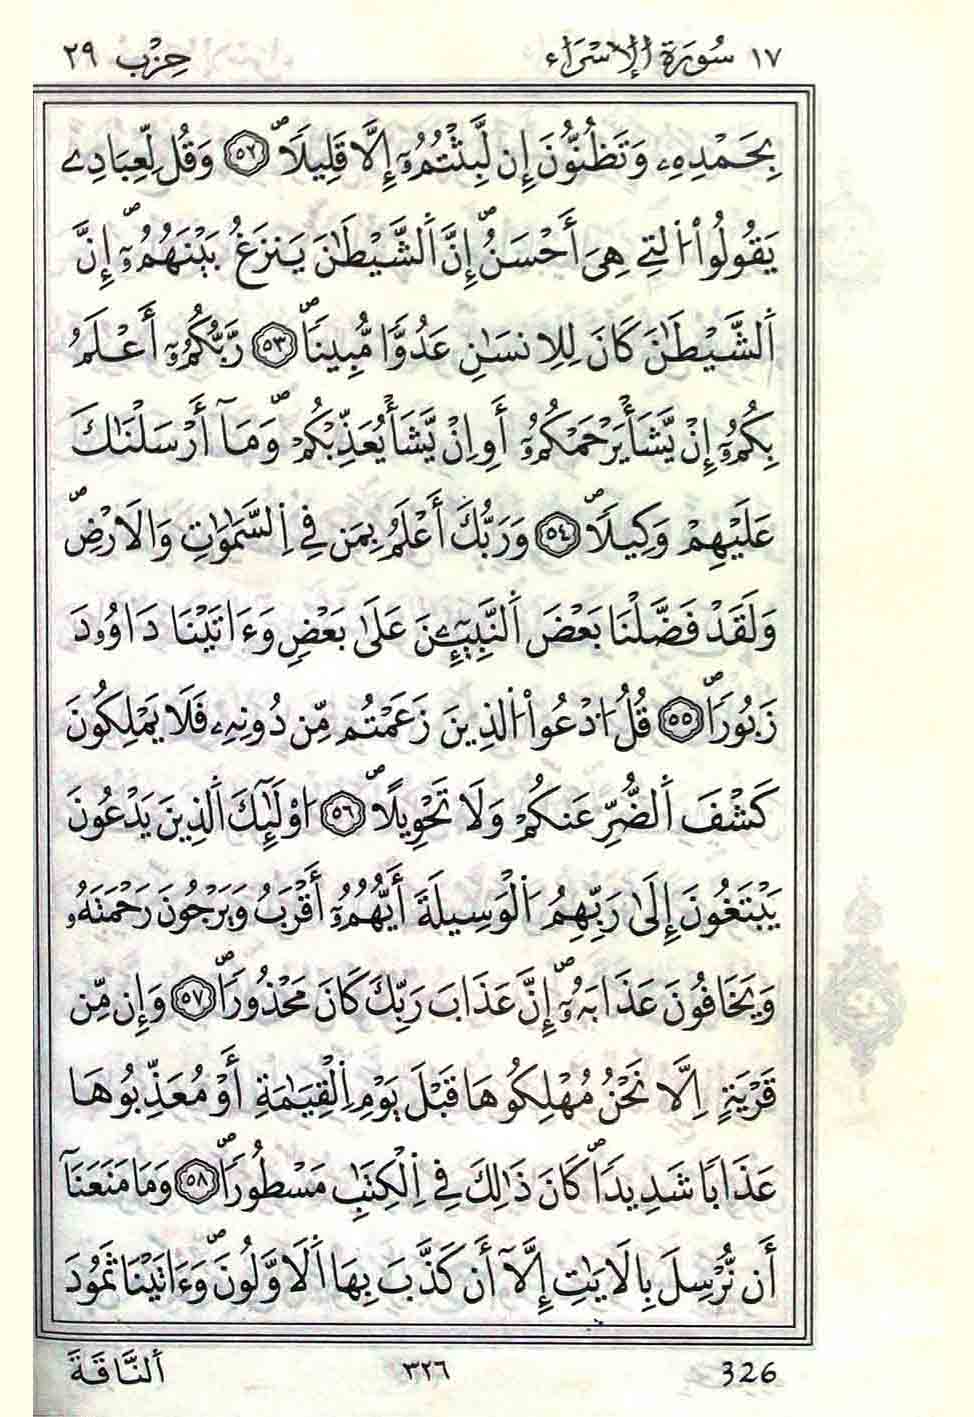 ١٧ سُورَةُ الإِسْرَاء حِزْب ٢٩
بِحَمْدِهِۦ وَتَظُنُّونَ إِن لَّبِثْتُمُۥٓ إِلَّا قَلِيلًاۖ ٥٢ وَقُل لِّعِبَادِے
يَقُولُواْ اُ۬لتِے هِيَ أَحْسَنُۖ إِنَّ اَ۬لشَّيْطَٰنَ يَنزَغُ بَيْنَهُمُۥٓۖ إِنَّ
اَ۬لشَّيْطَٰنَ كَانَ لِلِانسَٰنِ عَدُوّٗا مُّبِينٗاۖ ٥٣ رَّبُّكُمُۥٓ أَعْلَمُ
بِكُمُۥٓ إِنْ يَّشَأْ يَرْحَمْكُمُۥٓ أَوِ اِنْ يَّشَأْ يُعَذِّبْكُمْۖ وَمَآ أَرْسَلْنَٰكَ
عَلَيْهِمْ وَكِيلٗاۖ ٥٤ وَرَبُّكَ أَعْلَمُ بِمَن فِے اِ۬لسَّمَٰوَٰتِ وَالَارْضِۖ
وَلَقَدْ فَضَّلْنَا بَعْضَ اَ۬لنَّبِيٓـِٕۧنَ عَلَىٰ بَعْضٖ وَءَاتَيْنَا دَاوُۥدَ
زَبُورٗاۖ ٥٥ قُلُ اُ۟دْعُواْ اُ۬لذِينَ زَعَمْتُم مِّن دُونِهِۦ فَلَا يَمْلِكُونَ
كَشْفَ اَ۬لضُّرِّ عَنكُمْ وَلَا تَحْوِيلًاۖ ٥٦ ا۟وْلَٰٓئِكَ اَ۬لذِينَ يَدْعُونَ
يَبْتَغُونَ إِلَىٰ رَبِّهِمُ اُ۬لْوَسِيلَةَ أَيُّهُمُۥٓ أَقْرَبُ وَيَرْجُونَ رَحْمَتَهُۥ
وَيَخَافُونَ عَذَابَهُۥٓۖ إِنَّ عَذَابَ رَبِّكَ كَانَ مَحْذُورٗاۖ ٥٧ وَإِن مِّن
قَرْيَةٍ اِلَّا نَحْنُ مُهْلِكُوهَا قَبْلَ يَوْمِ اِ۬لْقِيَٰمَةِ أَوْ مُعَذِّبُوهَا
عَذَابٗا شَدِيدٗاۖ كَانَ ذَٰلِكَ فِے اِ۬لْكِتَٰبِ مَسْطُورٗاۖ ٥٨ وَمَا مَنَعَنَآ
أَن نُّرْسِلَ بِالَايَٰتِ إِلَّآ أَن كَذَّبَ بِهَا اَ۬لَاوَّلُونَۖ وَءَاتَيْنَا ثَمُودَ
اَ۬لنَّاقَةَ ٣٢٦ 326